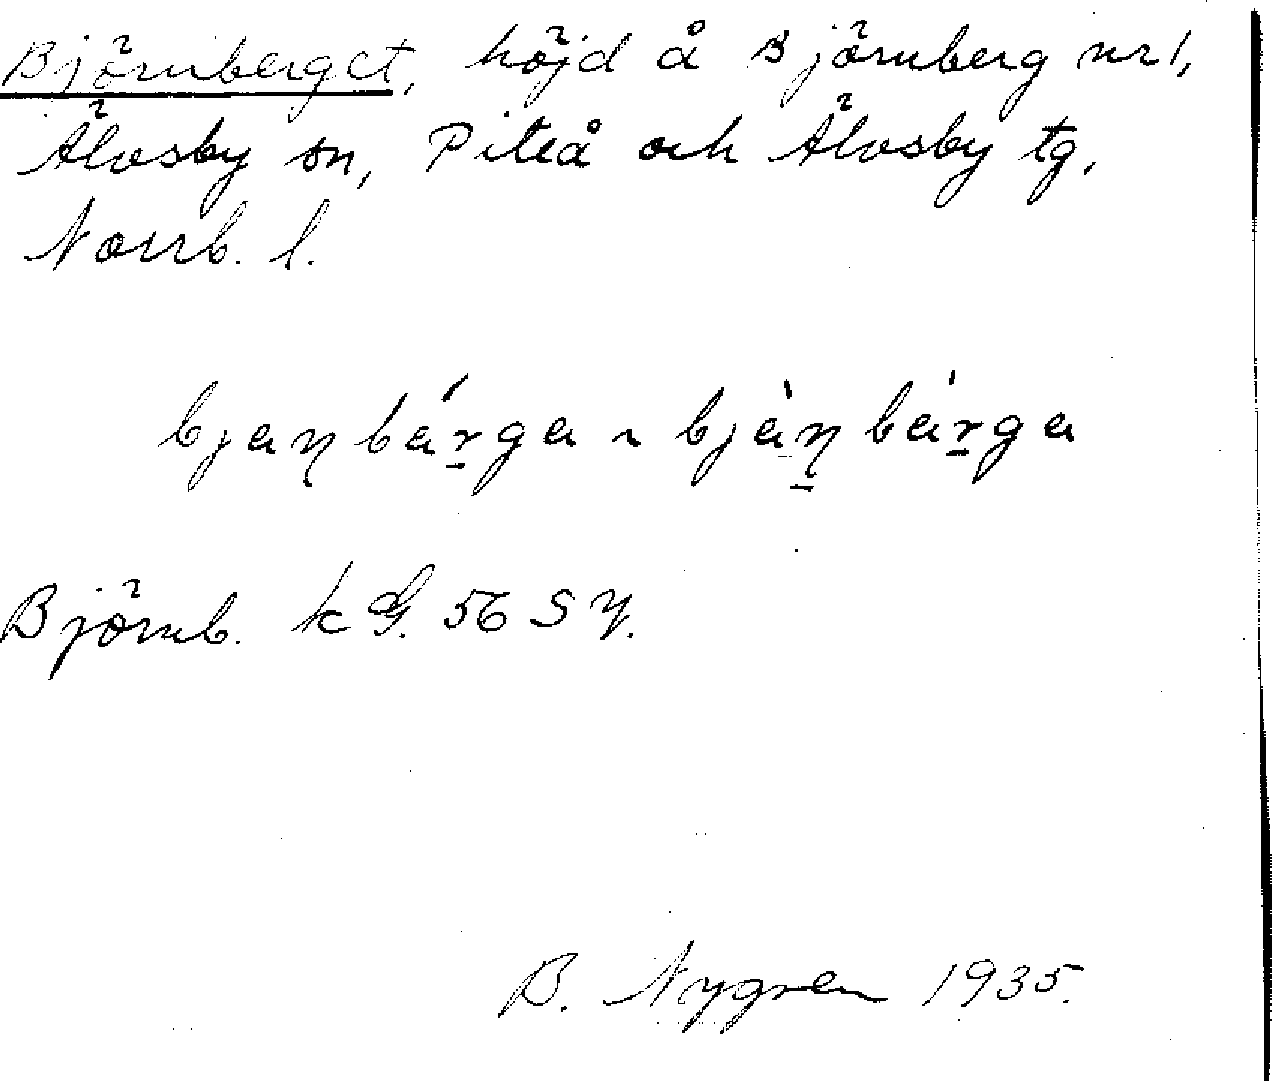 Björnberget, höjd å Björnberg nr 1,
Älvsby sn, Piteå och Älvsby tg,
Norrb. l.
bjaɳbárga ~ bjàɳbárga
Björnb. k G. 56 S Y.
B. Nygren 1935.